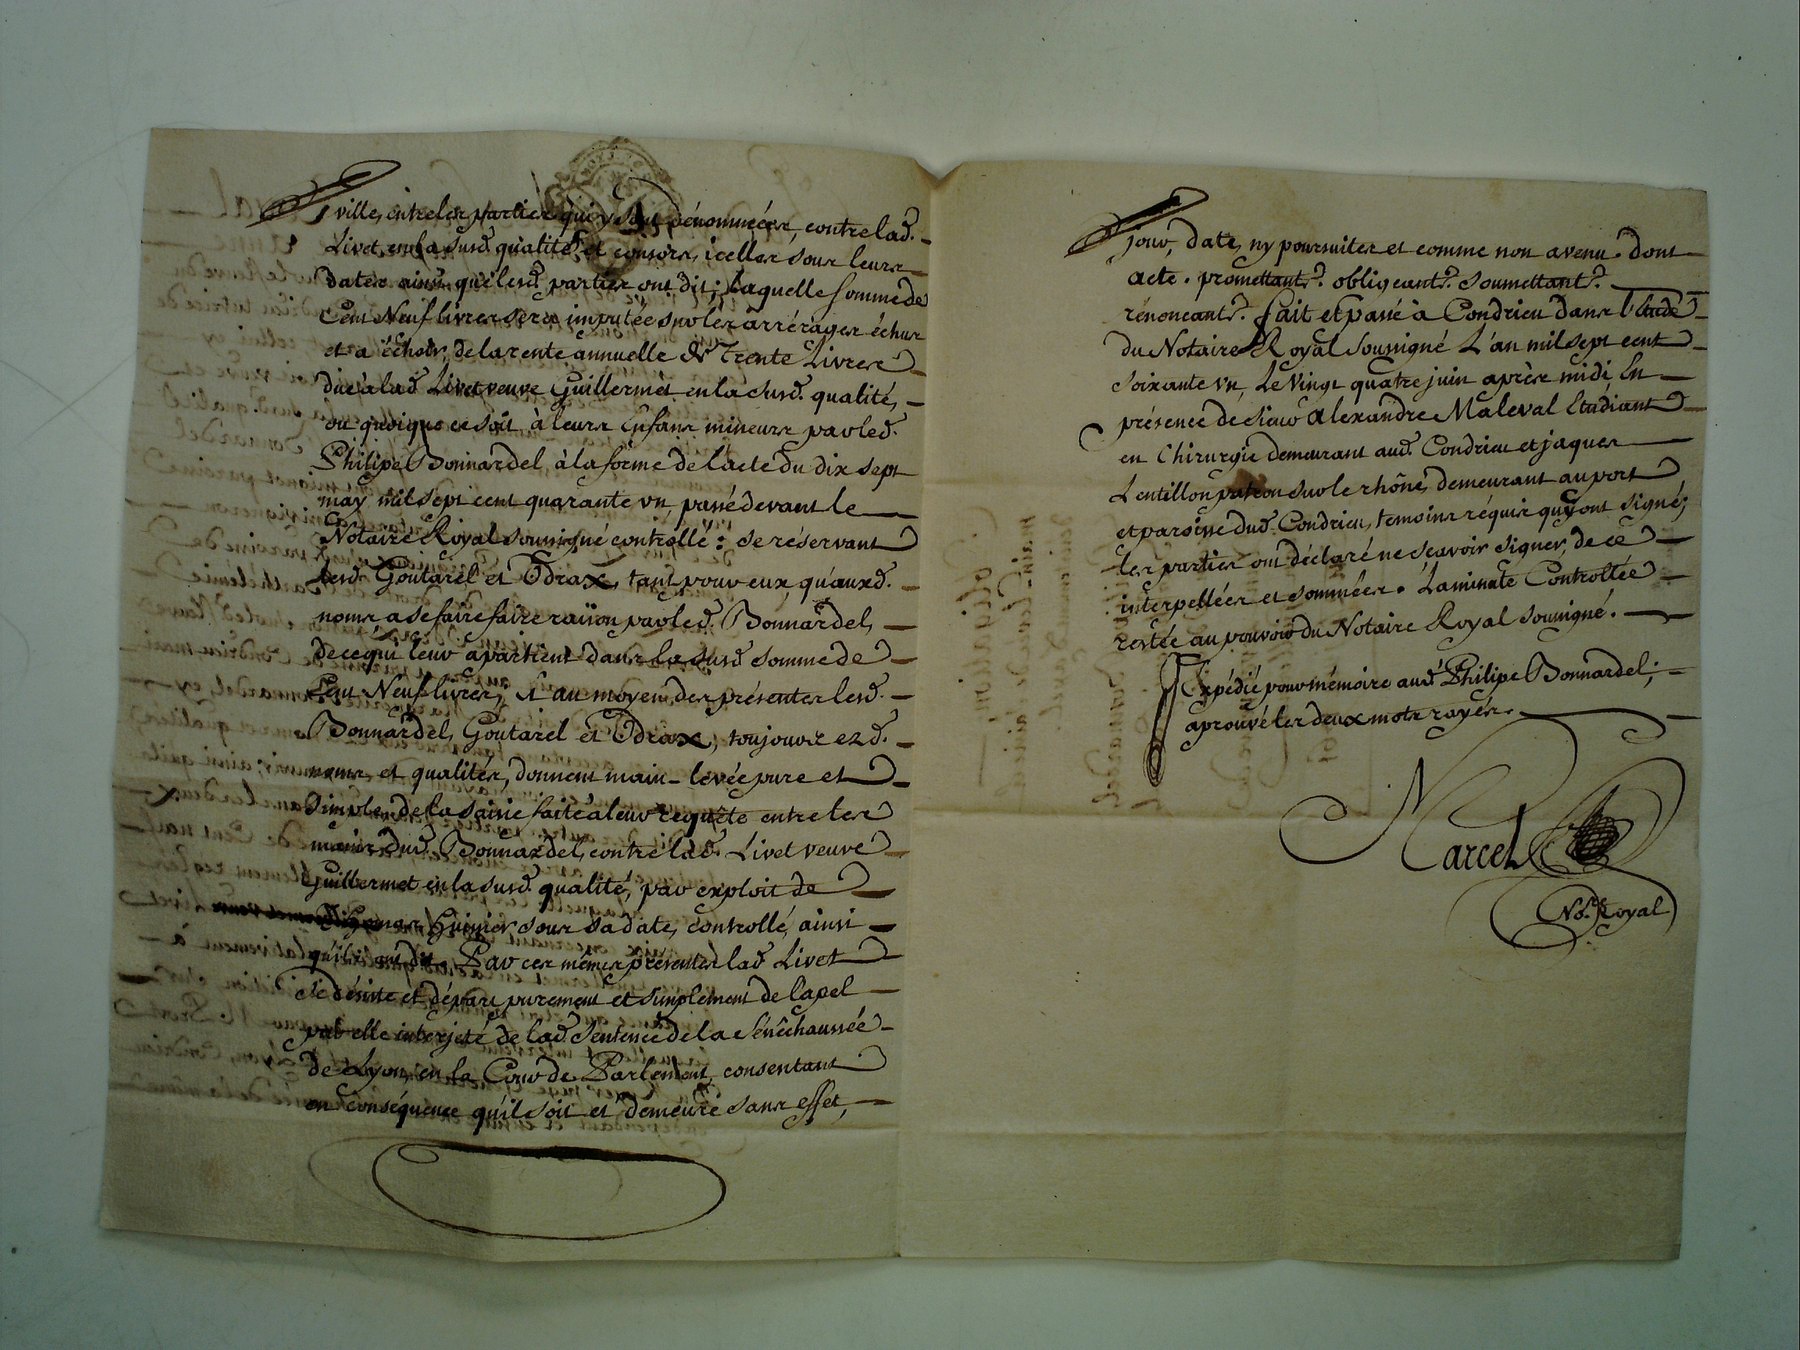 ville, entre les parties qui y sont dénommées, contre lad.
Livet, en la susd. qualité, et consors, icelles sous leurs
dates ainsi que lesd. parties ont dit; Laquelle somme de
Cent Neuf livres sera imputée sur les arrérages échus
et a échoir, de la rente annuelle de Trente Livres
düe à lad. Livet veuve Guillermet en la susd. qualité,
ou quoique ce soit à leurs Enfans mineurs par led.
Philipe Bonnardel, à la forme de l'acte du dix sept
may mil sept cent quarante un, passé devant le
Notaire Royal soussigné controllé: se réservant
lesd. Goutarel et Odrax, tant pour eux, qu'auxd.
noms a se faire faire raison par led. Bonnardel,
de ce qui leur apartient dans la susd. somme de
Cent Neuf livres, Et au moyen des présentes lesd.
Bonnardel, Goutarel et Odrax, toujours ezd.
noms, et qualités, donnent main-levée pure et
simple de la saisie faite à leur requête entre les
mains dud. Bonnardel, contre lad. Livet veuve
Guillermet en la susd. qualité, par exploit de
sous sa date, controllé, ainsi
qu'ils ont dit. Par ces mêmes présentes lad. Livet
se désiste et départ purement et simplement de l'apel
par elle interjeté de lad. sentence de la sénéchaussée
de Lyon, en la Cour de Parlement, consentant
en conséquence qu'il soit et demeure sans effet,
jour, date, ny poursuites et comme non avenu. dont
acte. promettant. obligeant. soumettant.
rénonçant. fait et passé à Condrieu dans l'Etude
du Notaire Royal soussigné L'an mil sept cent
soixante un, Le Vingt quatre juin après midi En
présence de sieur Alexandre Maleval Etudiant
en Chirurgie demeurant aud. Condrieu et jaques
Lentillon patron sur le rhône, demeurant au port
et paroisse dud. Condrieu, temoins réquis qui ont signé,
les parties ont déclaré ne sçavoir signer, de ce
interpellées et sommées. La minute Controllée
restée au pouvoir du Notaire Royal soussigné.
Expédié pour mémoire aud. Philipe Bonnardel;
aprouvé les deux mots rayés.
Marcel
No.re Royal